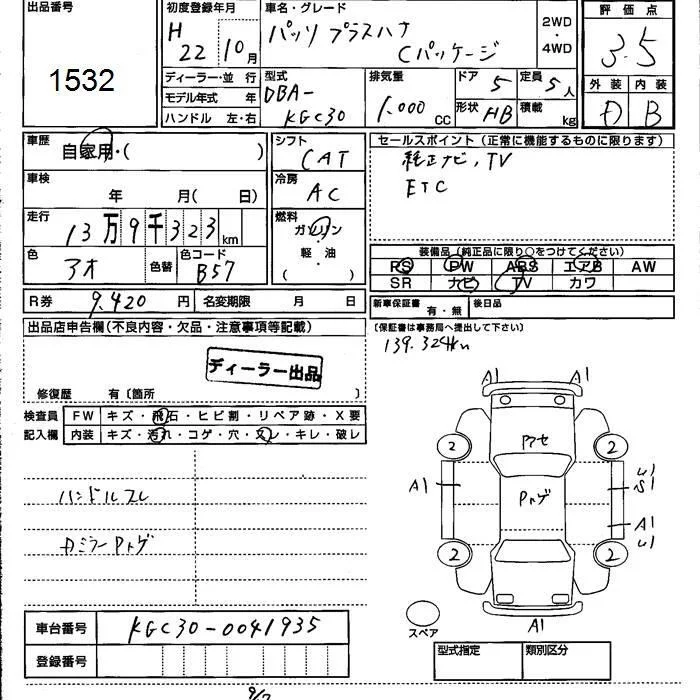 出品番号
1532
初度登録年月
H 22 10月
車名・グレード
パッソ プラスハナ
Cパッケージ
2WD
・
4WD
評価点
3.5
外装 内装
D B
ディーラー・並 行
モデル年式 年
ハンドル 左・右
型式
DBA-
KGC30
排気量
1.000 cc
ドア 5
形状 HB
定員 5人
積載 kg
車歴
自家用・( )
車検
年 月( 日)
走行
13万9千323km
色
アオ
色替
色コード
B57
シフト
CAT
冷房
AC
燃料
ガソリン
軽・油
( )
セールスポイント(正常に機能するものに限ります)
純正ナビ, TV
ETC
装備品(純正品に限り○をつけてください)
PS PW ABS エアB AW
SR ナビ TV カワ
R券 9,420 円 名変期限 月 日
新車保証書 有・無 後日品
(保証書は事務局へ提出して下さい)
139.324km
出品店申告欄(不良内容・欠品・注意事項等記載)
ディーラー出品
修復歴 有〔箇所 〕
検査員
記入欄
FW キズ・飛石・ヒビ割・リペア跡・X要
内装 キズ・汚れ・コゲ・穴・スレ・キレ・破レ
ハンドルスレ
Pトゲ
A1 A1
2 2
アセ
A1
Pトゲ
S1
A1
2 2
A1
スペア
車台番号 KGC30-0041935
登録番号
型式指定 類別区分